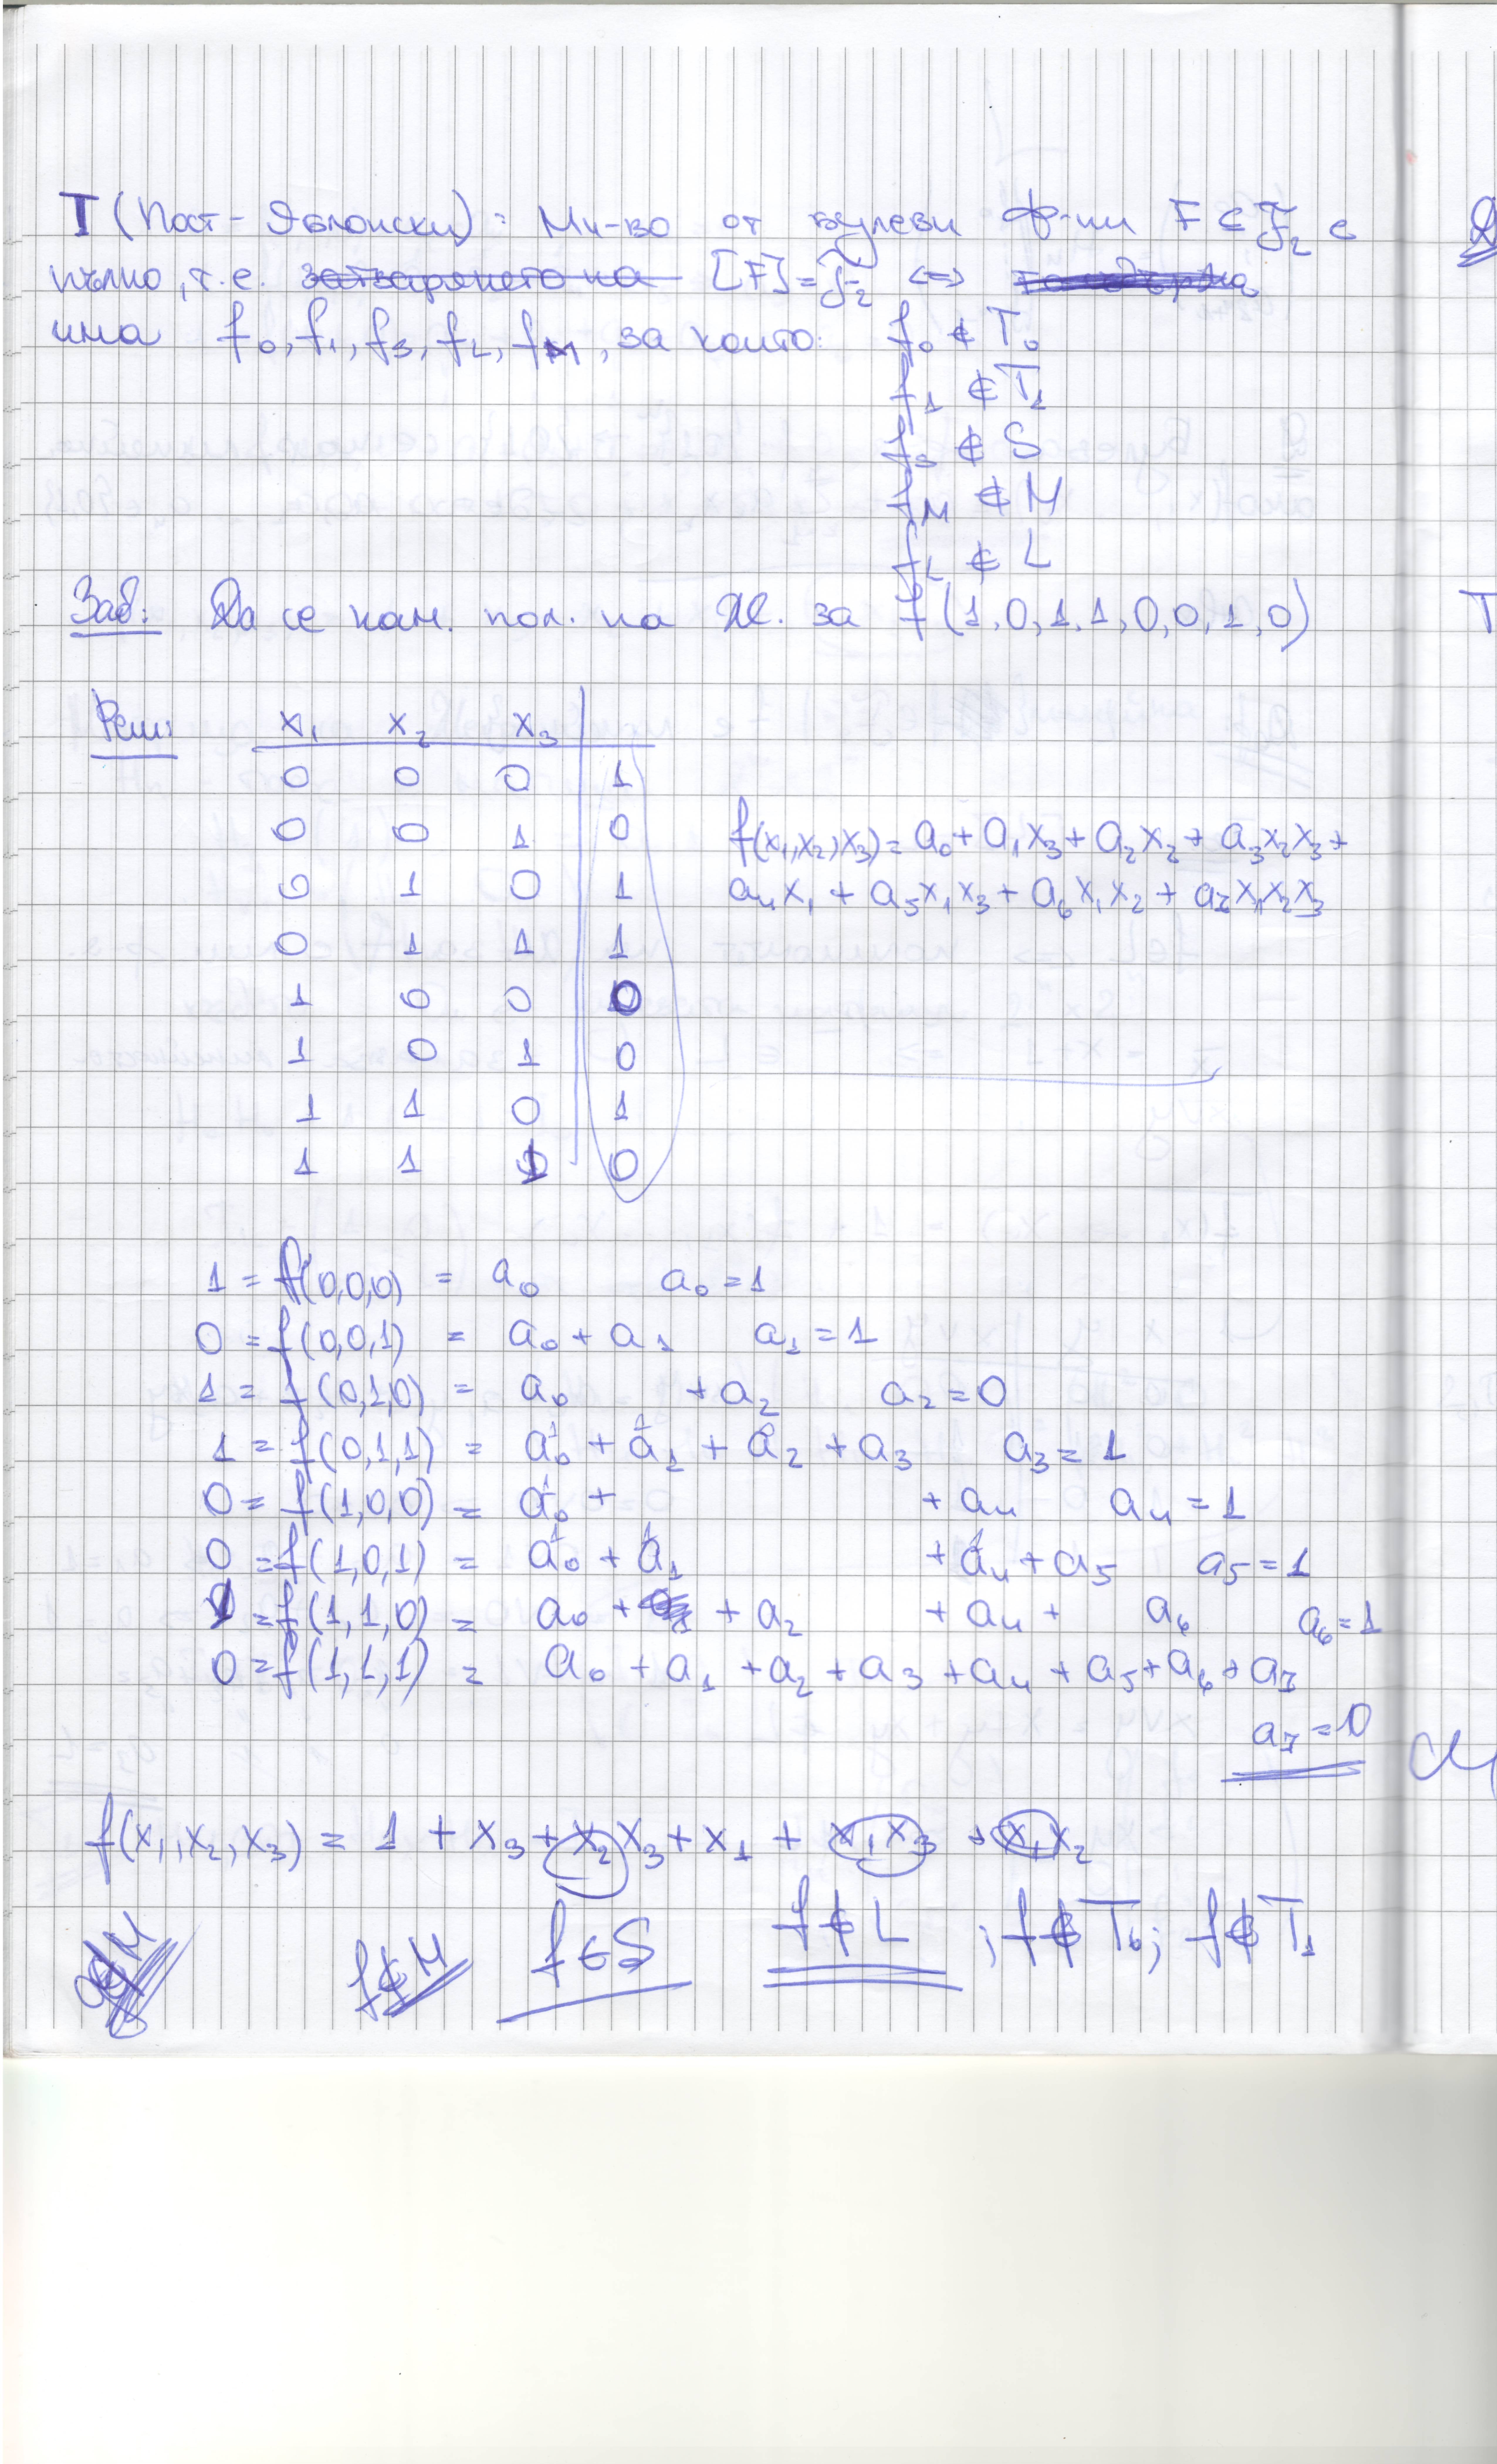 T (Пост-Яблонски): Мн-во от булеви ф-ии F ⊆ F₂ е
пълно, т.е. затварянето на [F] = F₂ <=>
има f₀, f₁, fₛ, f_L, f_M, за които: f₀ ∉ T₀
f₁ ∉ T₁
fₛ ∉ S
f_M ∉ M
f_L ∉ L
Зад: Да се нам. пол. на Ж. за f(1,0,1,1,0,0,1,0)
Реш: x₁ x₂ x₃
0 0 0 1
0 0 1 0
0 1 0 1
0 1 1 1
1 0 0 0
1 0 1 0
1 1 0 1
1 1 1 0
f(x₁,x₂,x₃) = a₀ + a₁x₃ + a₂x₂ + a₃x₂x₃ +
a₄x₁ + a₅x₁x₃ + a₆x₁x₂ + a₇x₁x₂x₃
1 = f(0,0,0) = a₀ a₀ = 1
0 = f(0,0,1) = a₀ + a₁ a₁ = 1
1 = f(0,1,0) = a₀ + a₂ a₂ = 0
1 = f(0,1,1) = a₀ + a₁ + a₂ + a₃ a₃ = 1
0 = f(1,0,0) = a₀ + + a₄ a₄ = 1
0 = f(1,0,1) = a₀ + a₁ + a₄ + a₅ a₅ = 1
1 = f(1,1,0) = a₀ + + a₂ + a₄ + a₆ a₆ = 1
0 = f(1,1,1) = a₀ + a₁ + a₂ + a₃ + a₄ + a₅ + a₆ + a₇
a₇ = 0
f(x₁,x₂,x₃) = 1 + x₃ + x₂x₃ + x₁ + x₁x₃ + x₁x₂
f ∉ M f ∈ S f ∉ L ; f ∉ T₀; f ∉ T₁